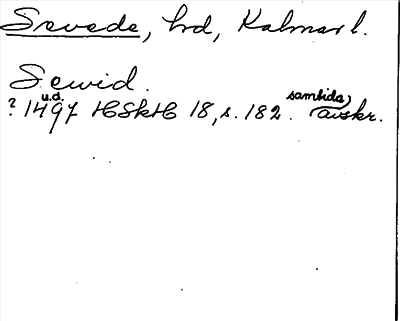 Sevede, hd, Kalmar l.
Sewid.
u.d. samtida
? 1497 HSkH 18, s. 182. avskr.